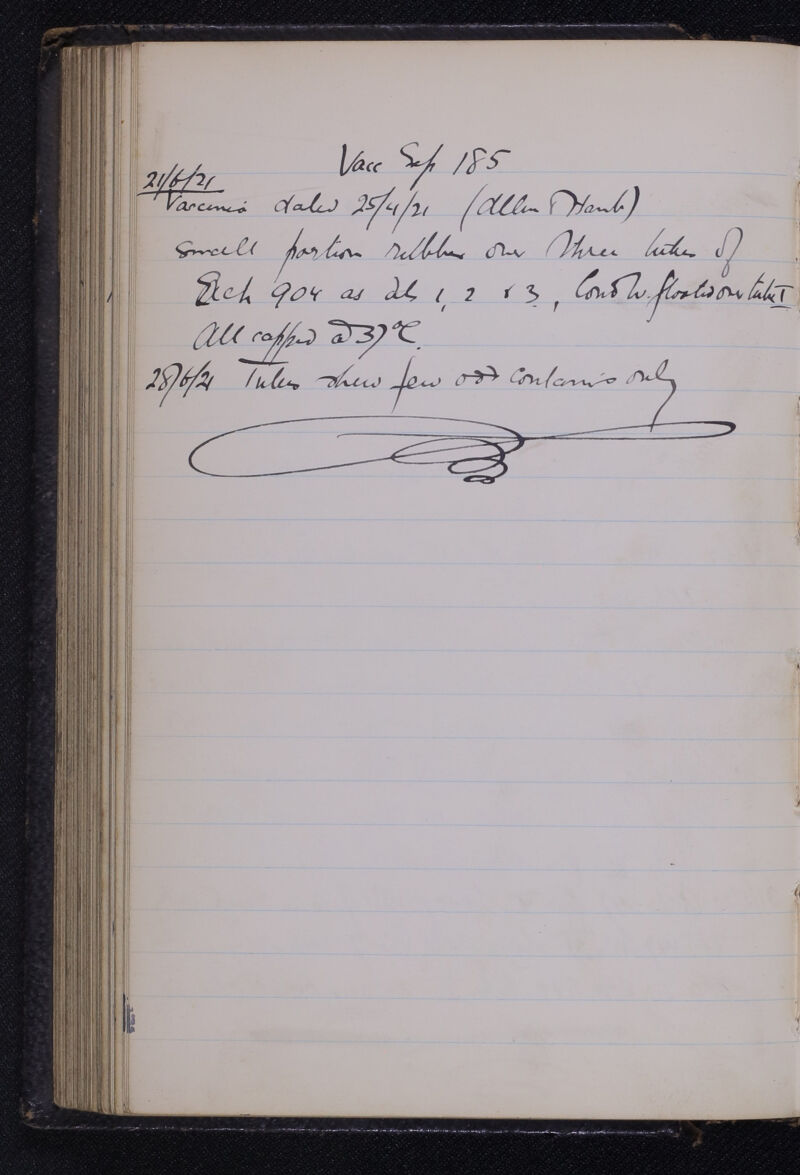 Vacc Sep 185
21/6/21
Vaccinia dated 25/4/21 (Allen & Hanb)
Small portion rubbed over three tubes of
Each 904 as ds 1, 2 & 3, Cond W. floated over tube I
All capped @ 37°C.
28/6/21 Tubes shew few odd contamns only